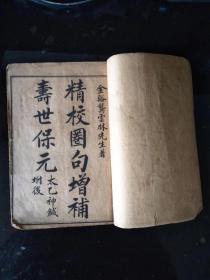 金谿龔雲林先生著
精校圈句增補
壽世保元
太乙神鍼
坿後